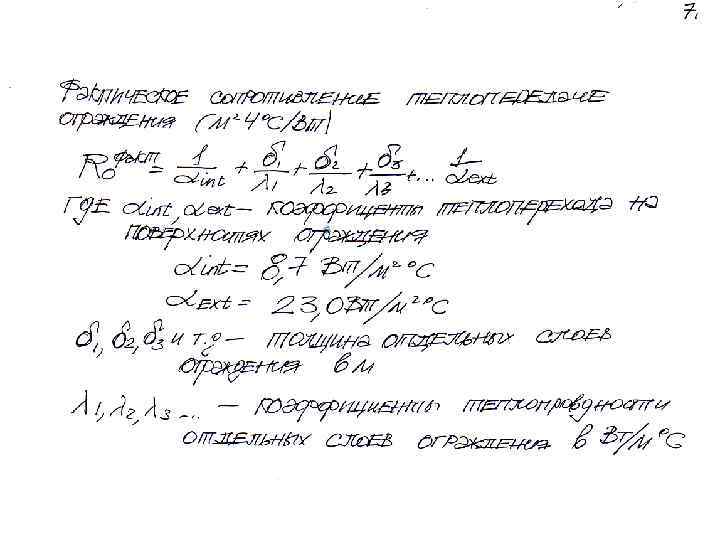 7.
Фактическое сопротивление теплопередаче
ограждения (м² ч °С/Вт)
R₀ᶠᵃᵏᵗ = 1/αint + δ₁/λ1 + δ₂/λ2 + δ3/λ3 +... 1/αext
Где αint, αext – коэффициенты теплоперехода на
поверхностях ограждения
αint = 8,7 Вт/м² °С
αExt = 23,0 Вт/м² °С
δ1, δ2, δ3 и т.д – толщина отдельных слоев
ограждения в м
λ1, λ2, λ3 ... – коэффициенты теплопроводности
отдельных слоев ограждения в Вт/м °С